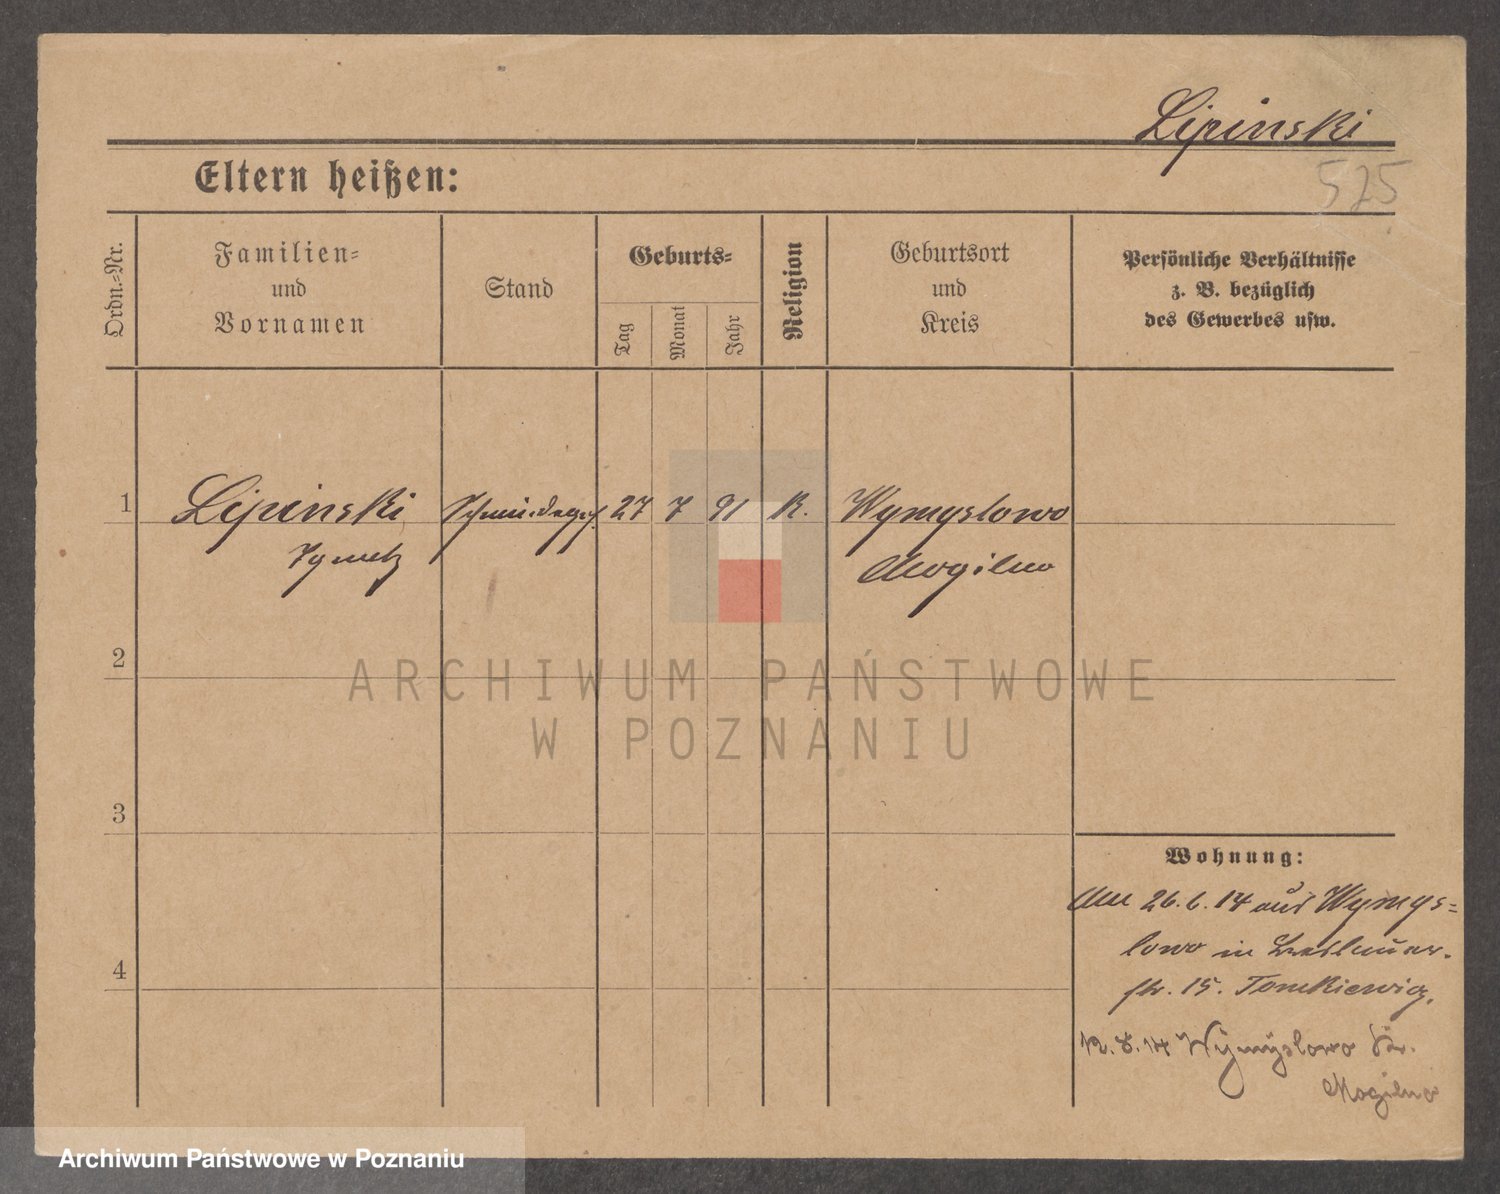 Lipinski
525
Eltern heißen:
Ordn.-Nr.
Familien-
und
Vornamen
Stand
Geburts-
Tag
Monat
Jahr
Religion
Geburtsort
und
Kreis
Persönliche Verhältnisse
z. B. bezüglich
des Gewerbes usw.
1
Lipinski
Ignatz
Schmiedeges.
27
7
91
K.
Wymyslowo
Mogilno
2
3
4
Wohnung:
Am 26.6.14 aus Wymys-
lowo in Breslauer-
str. 15. Tomkiewicz.
12.8.14 Wymyslowo Kr.
Mogilno
ARCHIWUM PAŃSTWOWE
W POZNANIU
Archiwum Państwowe w Poznaniu